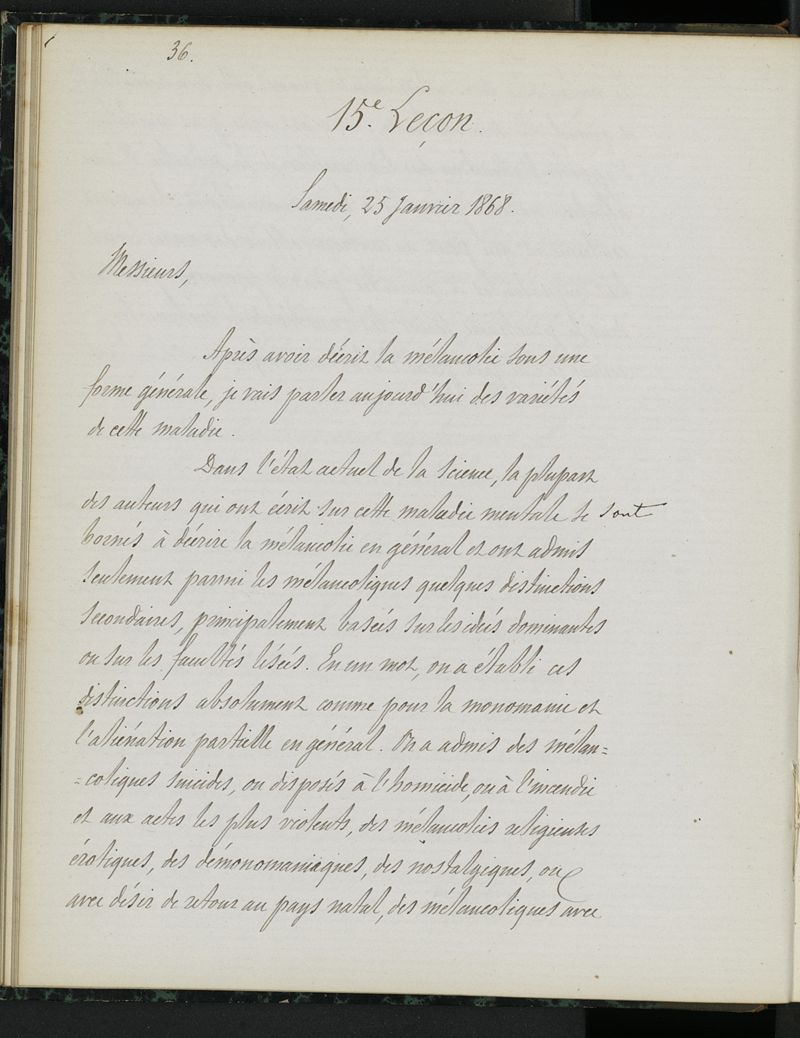 36.
15e. Leçon.
Samedi, 25 Janvier 1868.
Messieurs,
Après avoir décrit la mélancolie sous une
forme générale, je vais parler aujourd'hui des variétés
de cette maladie.
Dans l'état actuel de la science, la plupart
des auteurs qui ont écrit sur cette maladie mentale se sont
bornés à décrire la mélancolie en général et ont admis
seulement parmi les mélancoliques quelques distinctions
secondaires, principalement basées sur les idées dominantes
ou sur les facultés lésées. En un mot, on a établi ces
distinctions absolument comme pour la monomanie et
l'aliénation partielle en général. On a admis des mélan=
=coliques suicides, ou disposés à l'homicide, ou à l'incendie
et aux actes les plus violents, des mélancolies religieuses
érotiques, des démonomaniaques, des nostalgiques, ou
avec désir de retour au pays natal, des mélancoliques avec